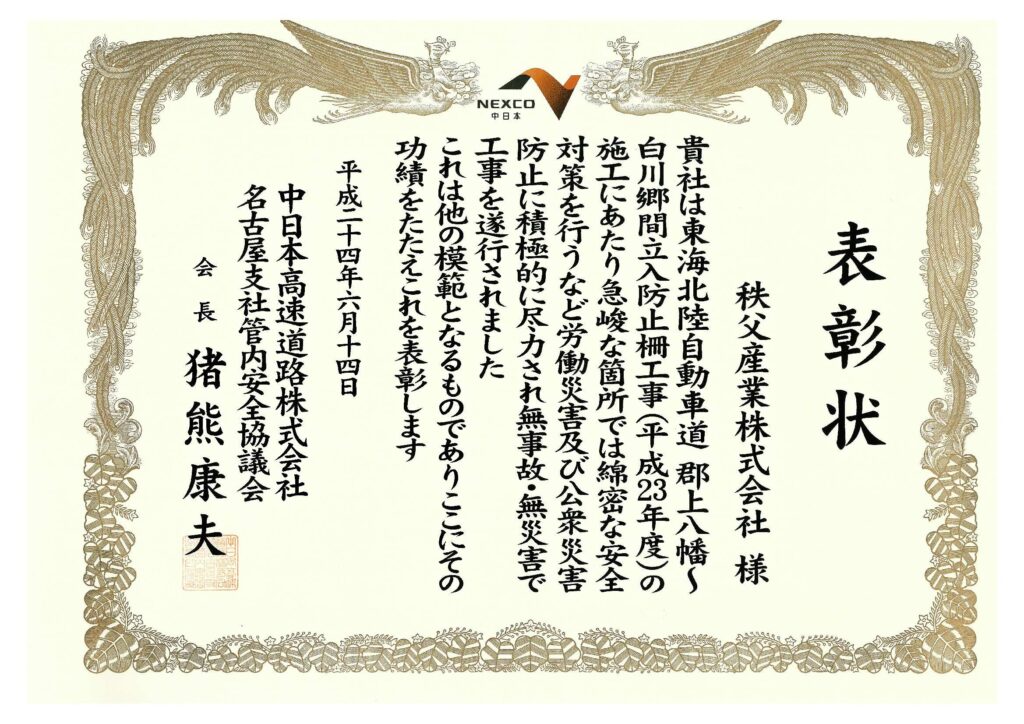 NEXCO
中日本
表彰状
秩父産業株式会社 様
貴社は東海北陸自動車道 郡上八幡〜
白川郷間立入防止柵工事(平成23年度)の
施工にあたり急峻な箇所では綿密な安全
対策を行うなど労働災害及び公衆災害
防止に積極的に尽力され無事故・無災害で
工事を遂行されました
これは他の模範となるものでありここにその
功績をたたえこれを表彰します
平成二十四年六月十四日
中日本高速道路株式会社
名古屋支社管内安全協議会
会長 猪熊康夫